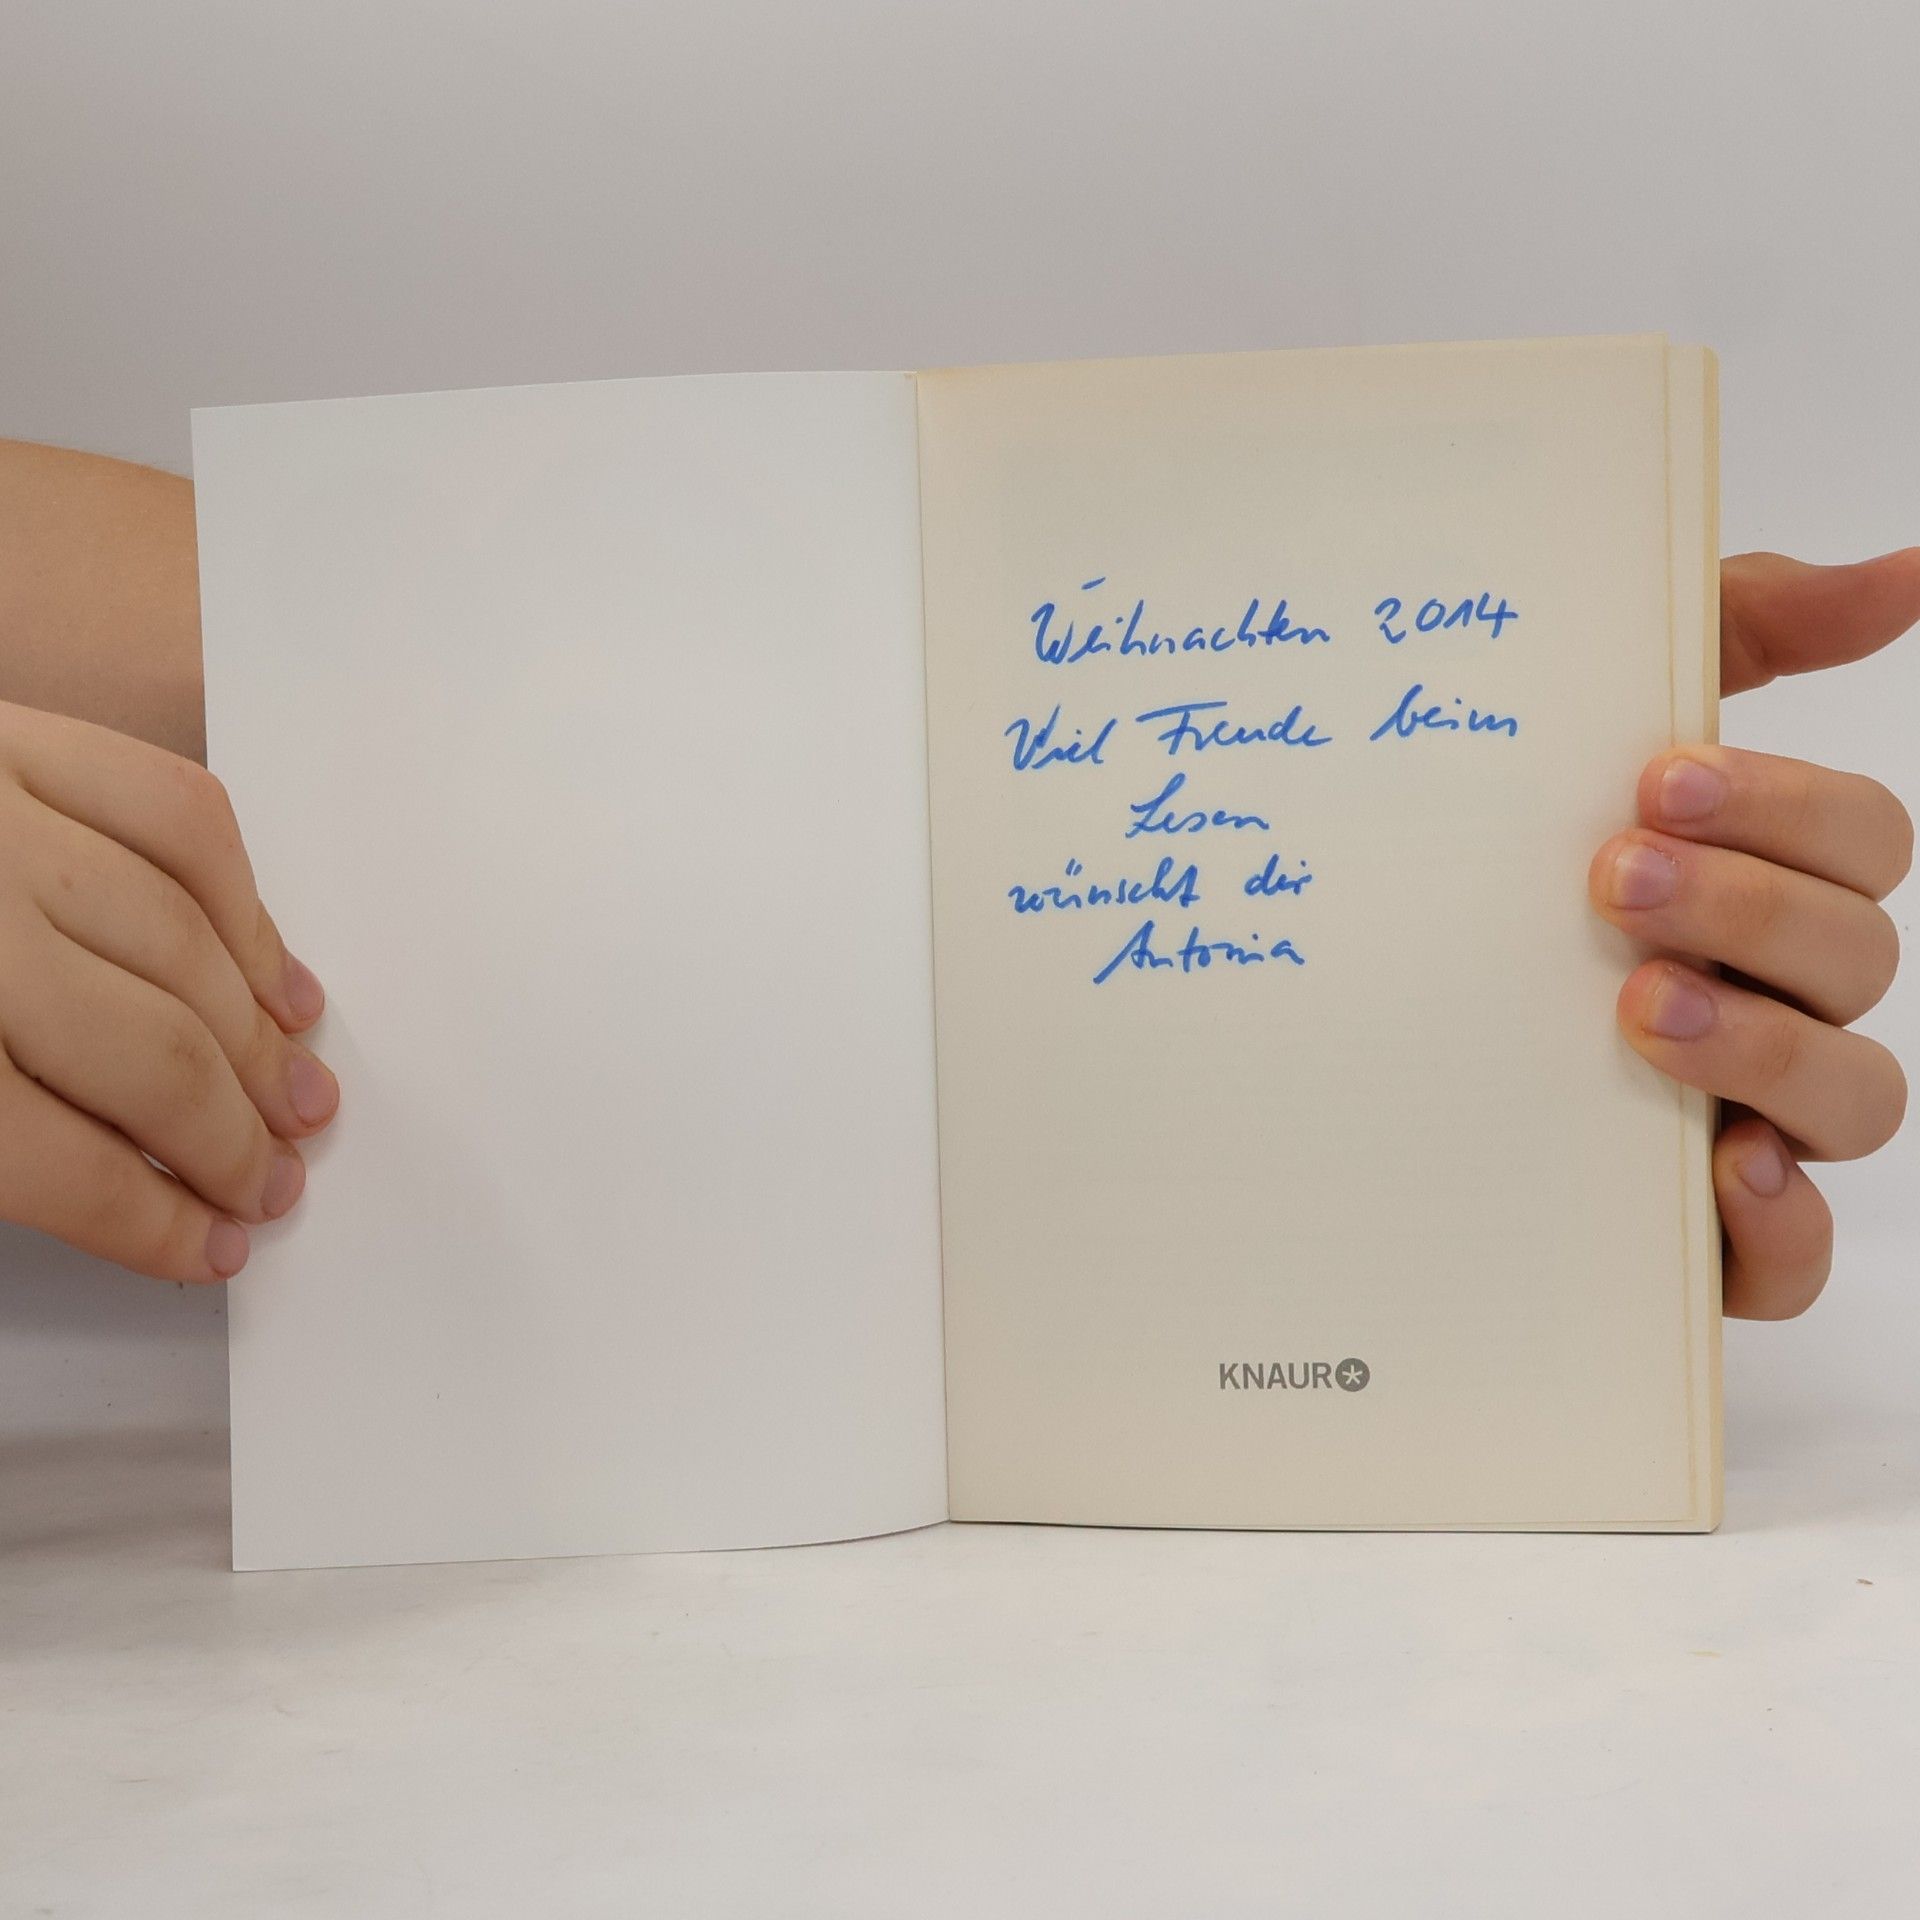 Weihnachten 2014
Viel Freude beim
Lesen
wünscht dir
Antonia
KNAUR